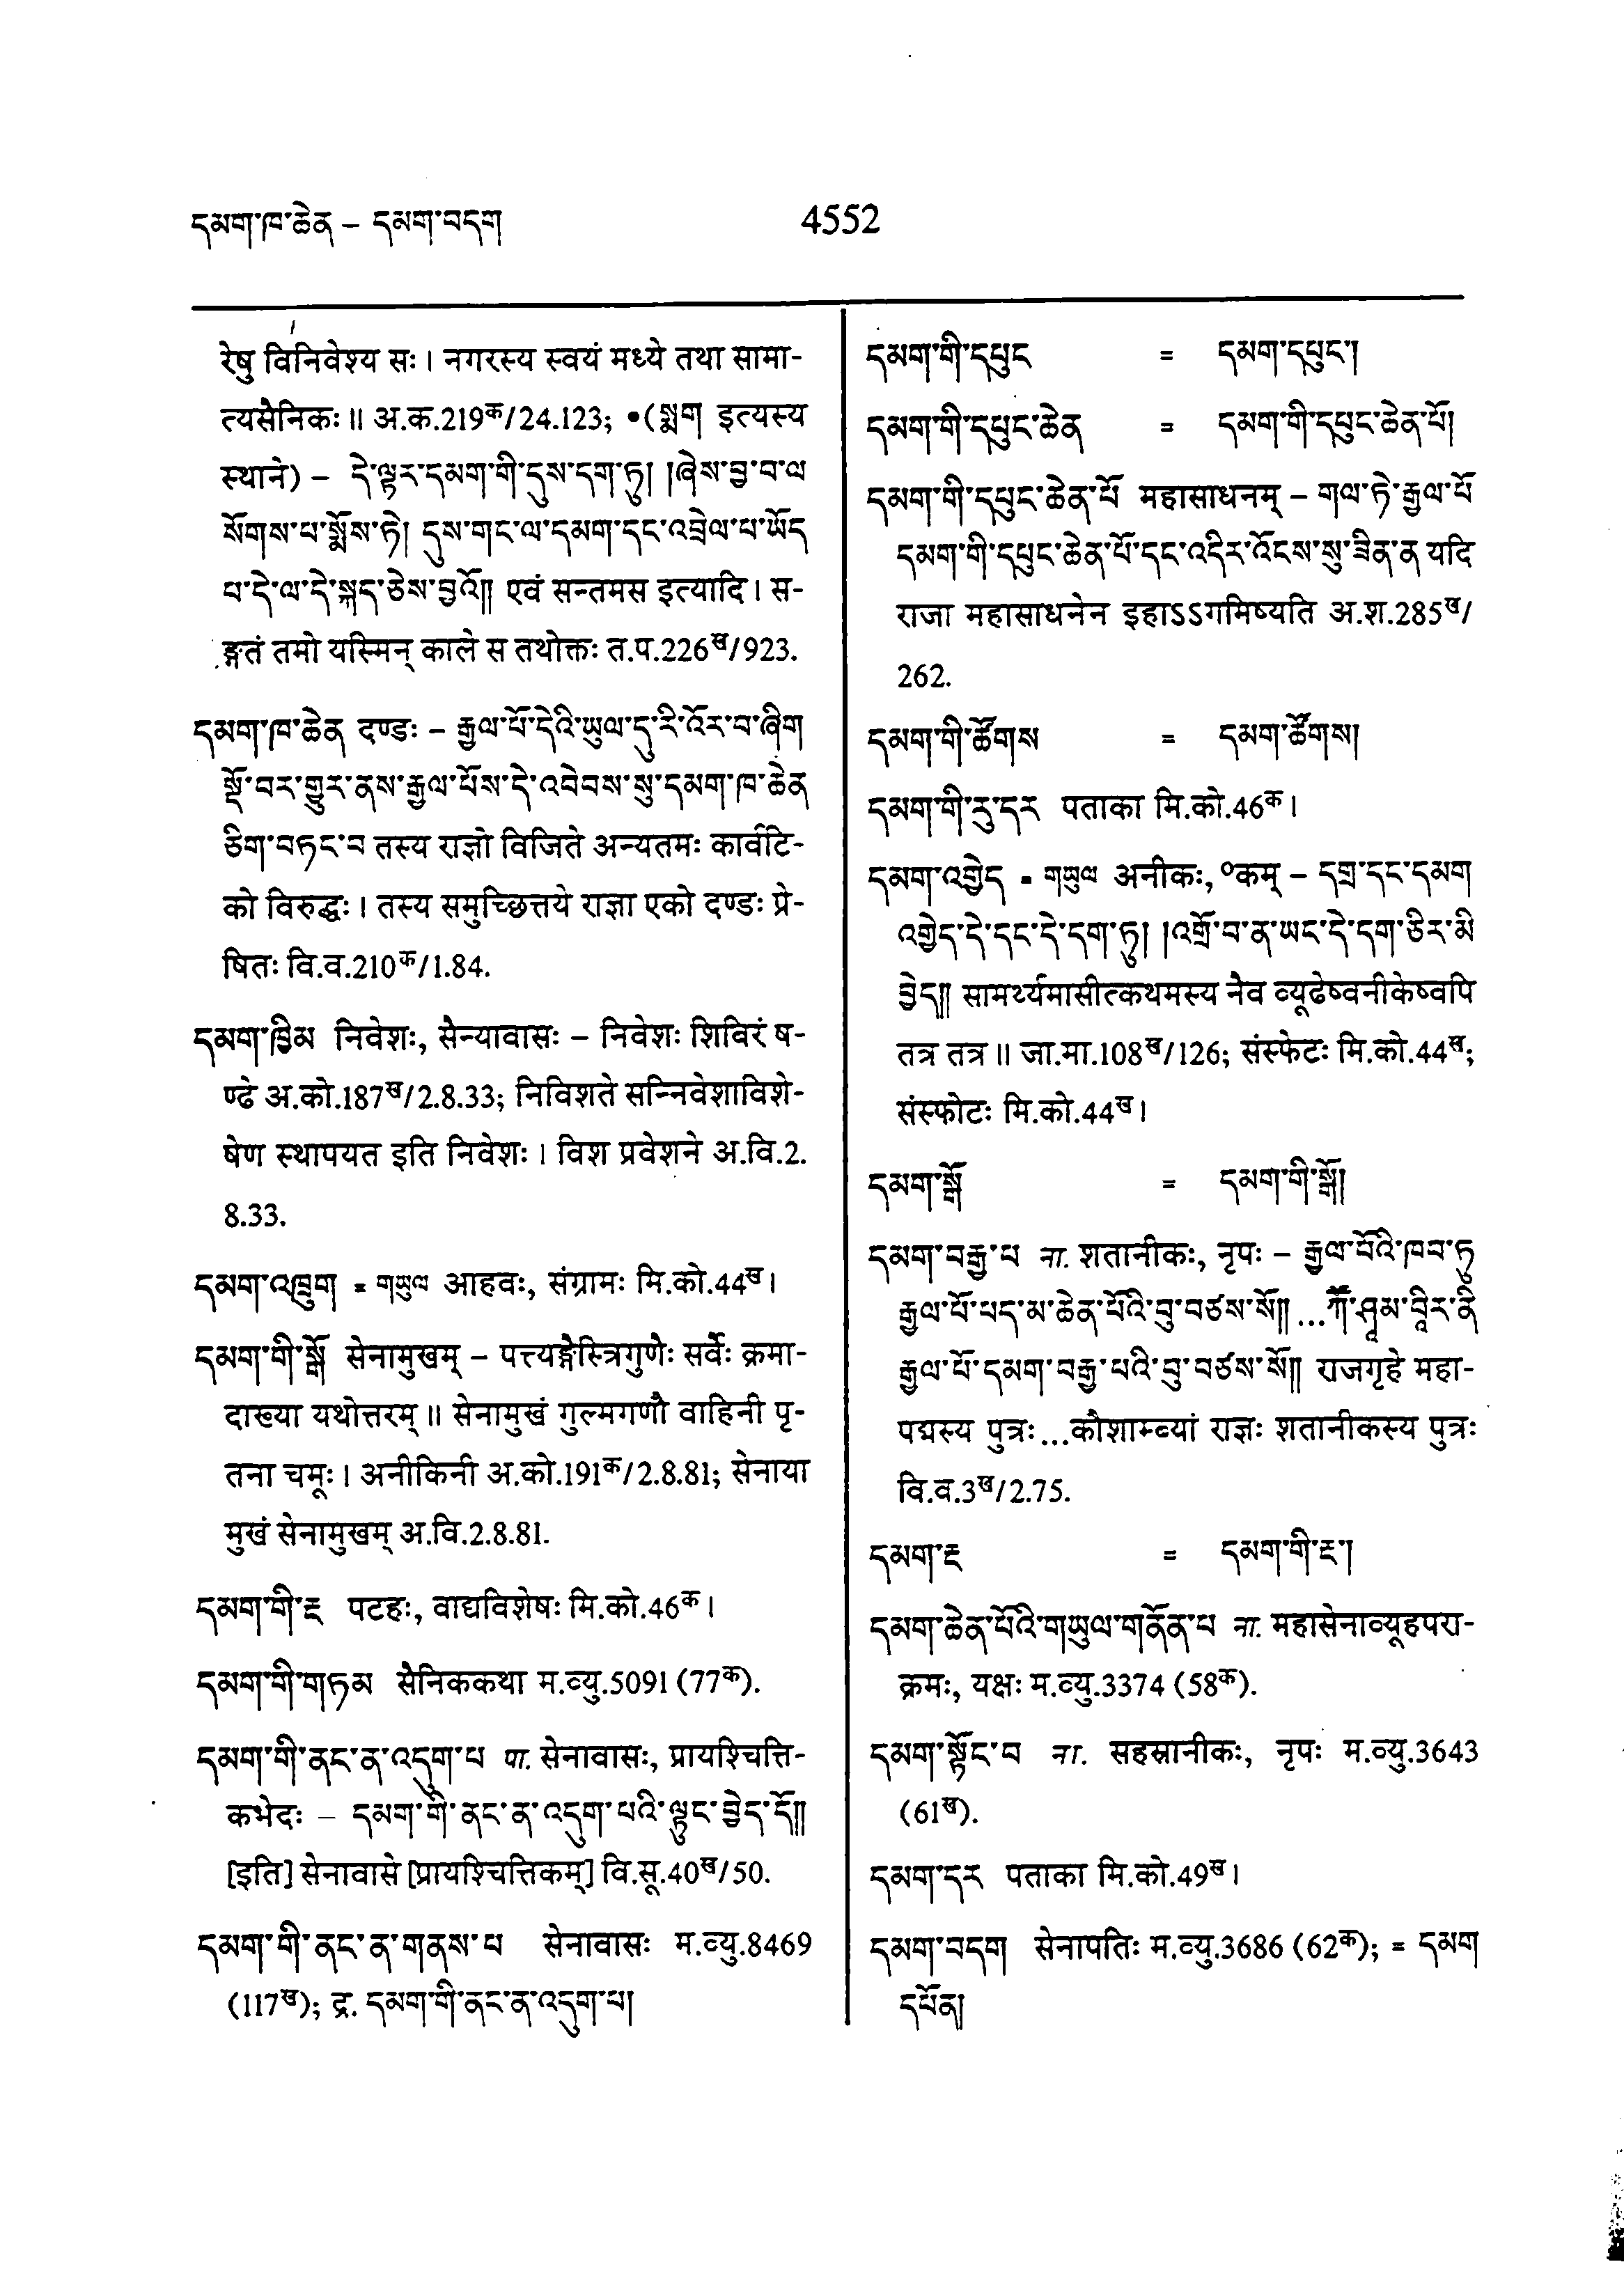 དམག་ཁ་ཆེན – དམག་བདག
4552
रेषु विनिवेश्य सः । नगरस्य स्वयं मध्ये तथा सामा-
त्यसैनिकः ॥ अ.क.219क/24.123; •(སྨག इत्यस्य
स्थाने) – དེ་ལྟར་དམག་གི་དུས་དག་ཏུ། །ཞེས་བྱ་བ་ལ
སོགས་པ་སྨོས་ཏེ། དུས་གང་ལ་དམག་དང་འབྲེལ་པ་ཡོད
པ་དེ་ལ་དེ་སྐད་ཅེས་བྱའོ༎ एवं सन्तमस इत्यादि । स-
ङ्गतं तमो यस्मिन् काले स तथोक्तः त.प.226ख/923.
དམག་ཁ་ཆེན दण्डः – རྒྱལ་པོ་དེའི་ཡུལ་དུ་རི་འོར་བ་ཞིག
སྡོ་བར་གྱུར་ནས་རྒྱལ་པོས་དེ་འབེབས་སུ་དམག་ཁ་ཆེན
ཅིག་བཏང་བ तस्य राज्ञो विजिते अन्यतमः कार्वटि-
को विरुद्धः । तस्य समुच्छित्तये राज्ञा एको दण्डः प्रे-
षितः वि.व.210क/1.84.
དམག་ཁྱིམ निवेशः, सैन्यावासः – निवेशः शिबिरं ष-
ण्ढे अ.को.187ख/2.8.33; निविशते सन्निवेशाविशे-
षेण स्थापयत इति निवेशः । विश प्रवेशने अ.वि.2.
8.33.
དམག་འཁྲུག = གཡུལ आहवः, संग्रामः मि.को.44ख ।
དམག་གི་སྒོ सेनामुखम् – पत्त्यङ्गैस्त्रिगुणैः सर्वैः क्रमा-
दाख्या यथोत्तरम् ॥ सेनामुखं गुल्मगणौ वाहिनी पृ-
तना चमूः । अनीकिनी अ.को.191क/2.8.81; सेनाया
मुखं सेनामुखम् अ.वि.2.8.81.
དམག་གི་རྔ पटहः, वाद्यविशेषः मि.को.46क ।
དམག་གི་གཏམ सैनिककथा म.व्यु.5091 (77क).
དམག་གི་ནང་ན་འདུག་པ पा. सेनावासः, प्रायश्चित्ति-
कभेदः – དམག་གི་ནང་ན་འདུག་པའི་ལྟུང་བྱེད་དོ༎
[इति] सेनावासे [प्रायश्चित्तिकम्] वि.सू.40ख/50.
དམག་གི་ནང་ན་གནས་པ सेनावासः म.व्यु.8469
(117ख); द्र. དམག་གི་ནང་ན་འདུག་པ།
དམག་གི་དཔུང = དམག་དཔུང་།
དམག་གི་དཔུང་ཆེན = དམག་གི་དཔུང་ཆེན་པོ།
དམག་གི་དཔུང་ཆེན་པོ महासाधनम् – གལ་ཏེ་རྒྱལ་པོ
དམག་གི་དཔུང་ཆེན་པོ་དང་འདིར་འོངས་སུ་ཟིན་ན यदि
राजा महासाधनेन इहाऽऽगमिष्यति अ.श.285ख/
262.
དམག་གི་ཚོགས = དམག་ཚོགས།
དམག་གི་རུ་དར पताका मि.को.46क ।
དམག་འགྱེད = གཡུལ अनीकः, ॰कम् – དགྲ་དང་དམག
འགྱེད་དེ་དང་དེ་དག་ཏུ། །འགྲོ་བ་ན་ཡང་དེ་དག་ཅིར་མི
བྱེད༎ सामर्थ्यमासीत्कथमस्य नैव व्यूढेष्वनीकेष्वपि
तत्र तत्र ॥ जा.मा.108ख/126; संस्फेटः मि.को.44ख;
संस्फोटः मि.को.44ख ।
དམག་སྒོ = དམག་གི་སྒོ།
དམག་བརྒྱ་པ ना. शतानीकः, नृपः – རྒྱལ་པོའི་ཁབ་ཏུ
རྒྱལ་པོ་པད་མ་ཆེན་པོའི་བུ་བཙས་སོ༎ ...ཀཽ་ཤཱམ་བཱིར་ནི
རྒྱལ་པོ་དམག་བརྒྱ་པའི་བུ་བཙས་སོ༎ राजगृहे महा-
पद्मस्य पुत्रः...कौशाम्ब्यां राज्ञः शतानीकस्य पुत्रः
वि.व.3ख/2.75.
དམག་རྔ = དམག་གི་རྔ་།
དམག་ཆེན་པོའི་གཡུལ་གནོན་པ ना. महासेनाव्यूहपरा-
क्रमः, यक्षः म.व्यु.3374 (58क).
དམག་སྟོང་བ ना. सहस्रानीकः, नृपः म.व्यु.3643
(61ख).
དམག་དར पताका मि.को.49ख ।
དམག་བདག सेनापतिः म.व्यु.3686 (62क); = དམག
དཔོན།